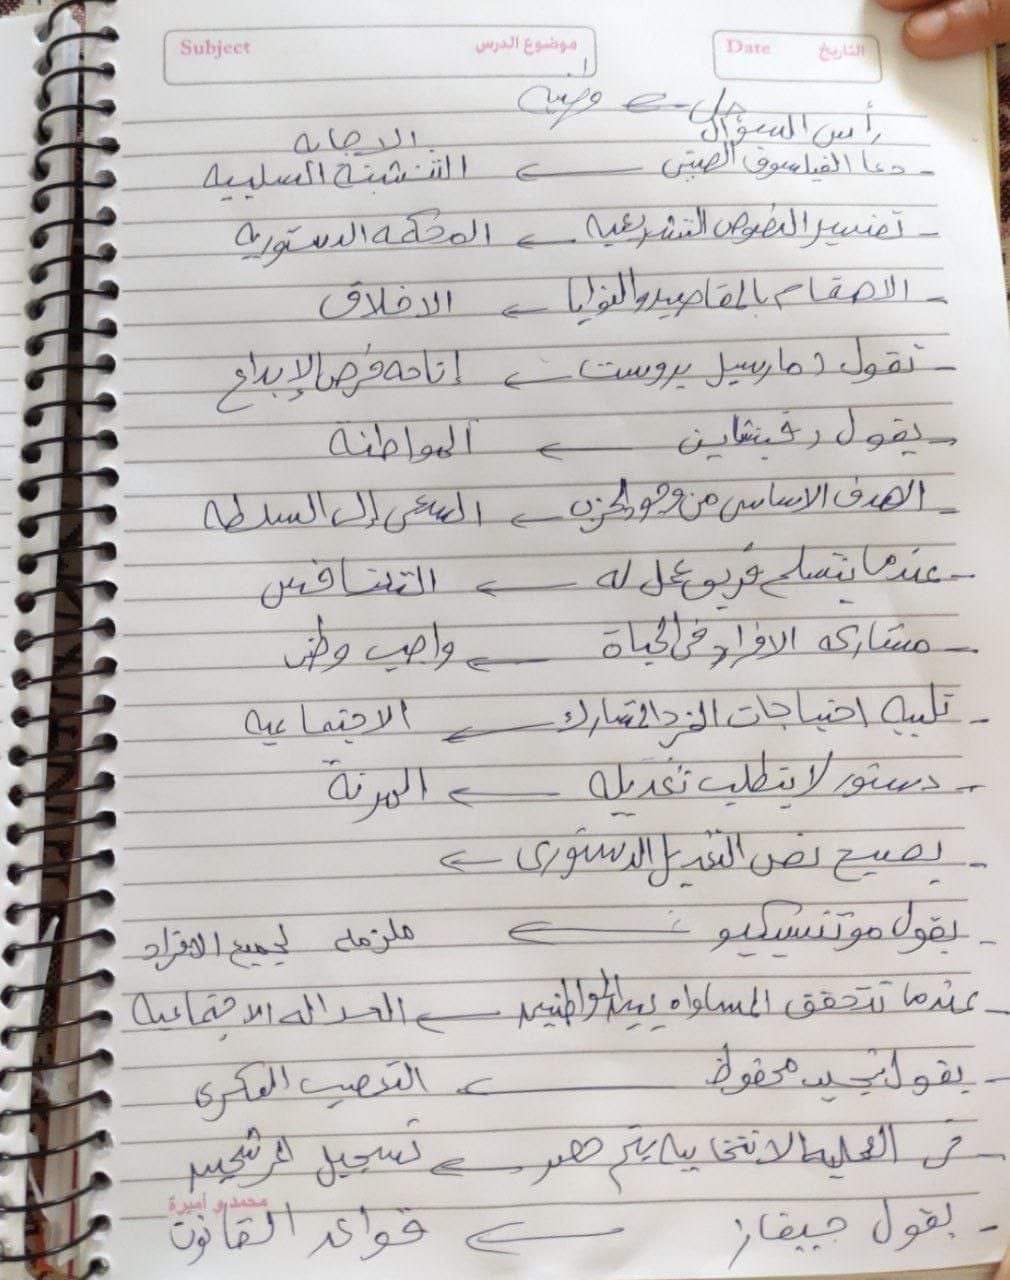 Subject موضوع الدرس Date التاريخ
حل ← وطنيه
رأس السؤال الاجابه
- دعا الفيلسوف الصينى ← التنشئة السلبيه
- تفسير النصوص التشريعيه ← المحكمه الدستوريه
- الاهتمام بالمقاصد والنوايا ← الاخلاق
- تقول (مارسيل بروست) ← إتاحه فرص الإبداع
- يقول رفينشاين ← المواطنة
- الهدف الاساسى من وجود الحزب ← السعى إلى السلطه
- عندما يتسلح فريق عمل له ← التنافس
- مشاركه الافراد فى الحياة ← واجب وطنى
- تلبيه احتياجات الفرد المشارك ← الاجتماعيه
- دستور لا يتطلب تعديله ← المرنة
- يصبح نص التعديل الدستورى ←
- يقول مونتسكيو ← ملزمه لجميع الافراد
- عندما تتحقق المساواه بين المواطنين ← العداله الاجتماعيه
- يقول نجيب محفوظ ← التعصب الفكرى
- فى العمليه الانتخابيه يتم حصر ← تسجيل المرشحين
محمد و أميرة
- يقول جيفار ← قواعد القانون